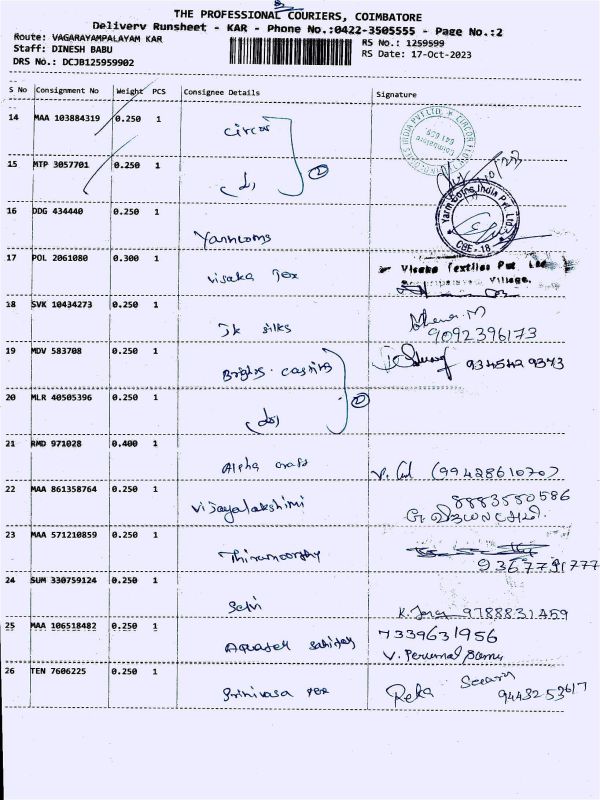 THE PROFESSIONAL COURIERS, COIMBATORE
Delivery Runsheet - KAR - Phone No.:0422-3505555 - Page No.:2
Route: VAGARAYAMPALAYAM KAR
RS No.: 1259599
Staff: DINESH BABU
RS Date: 17-Oct-2023
DRS No.: DCJB125959902
S No Consignment No Weight PCS Consignee Details Signature
14 MAA 103884319 0.250 1 Circor
15 MTP 3057701 0.250 1 (do) 2
16 DDG 434440 0.250 1 Yarncoms Yarn Coms India Pvt. Ltd. CBE - 18
17 POL 2061080 0.300 1 Visaka Tex Visaka Textiles Pvt. Ltd
Village.
18 SVK 10434273 0.250 1 Jk silks 9092396173
19 MDV 583708 0.250 1 Brights casting 9345429373
20 MLR 40505396 0.250 1 (do) 2
21 RMD 971028 0.400 1 Alpha craft (9942861070)
22 MAA 861358764 0.250 1 Vijayalakshimi 8883580586
23 MAA 571210859 0.250 1 Thiramoorthy 9367791777
24 SUM 330759124 0.250 1 Selvi 9788831459
25 MAA 106518482 0.250 1 Aquatek 7339631956
V. Perumal Samy
26 TEN 7606225 0.250 1 Srinivasa Reka 9443253617